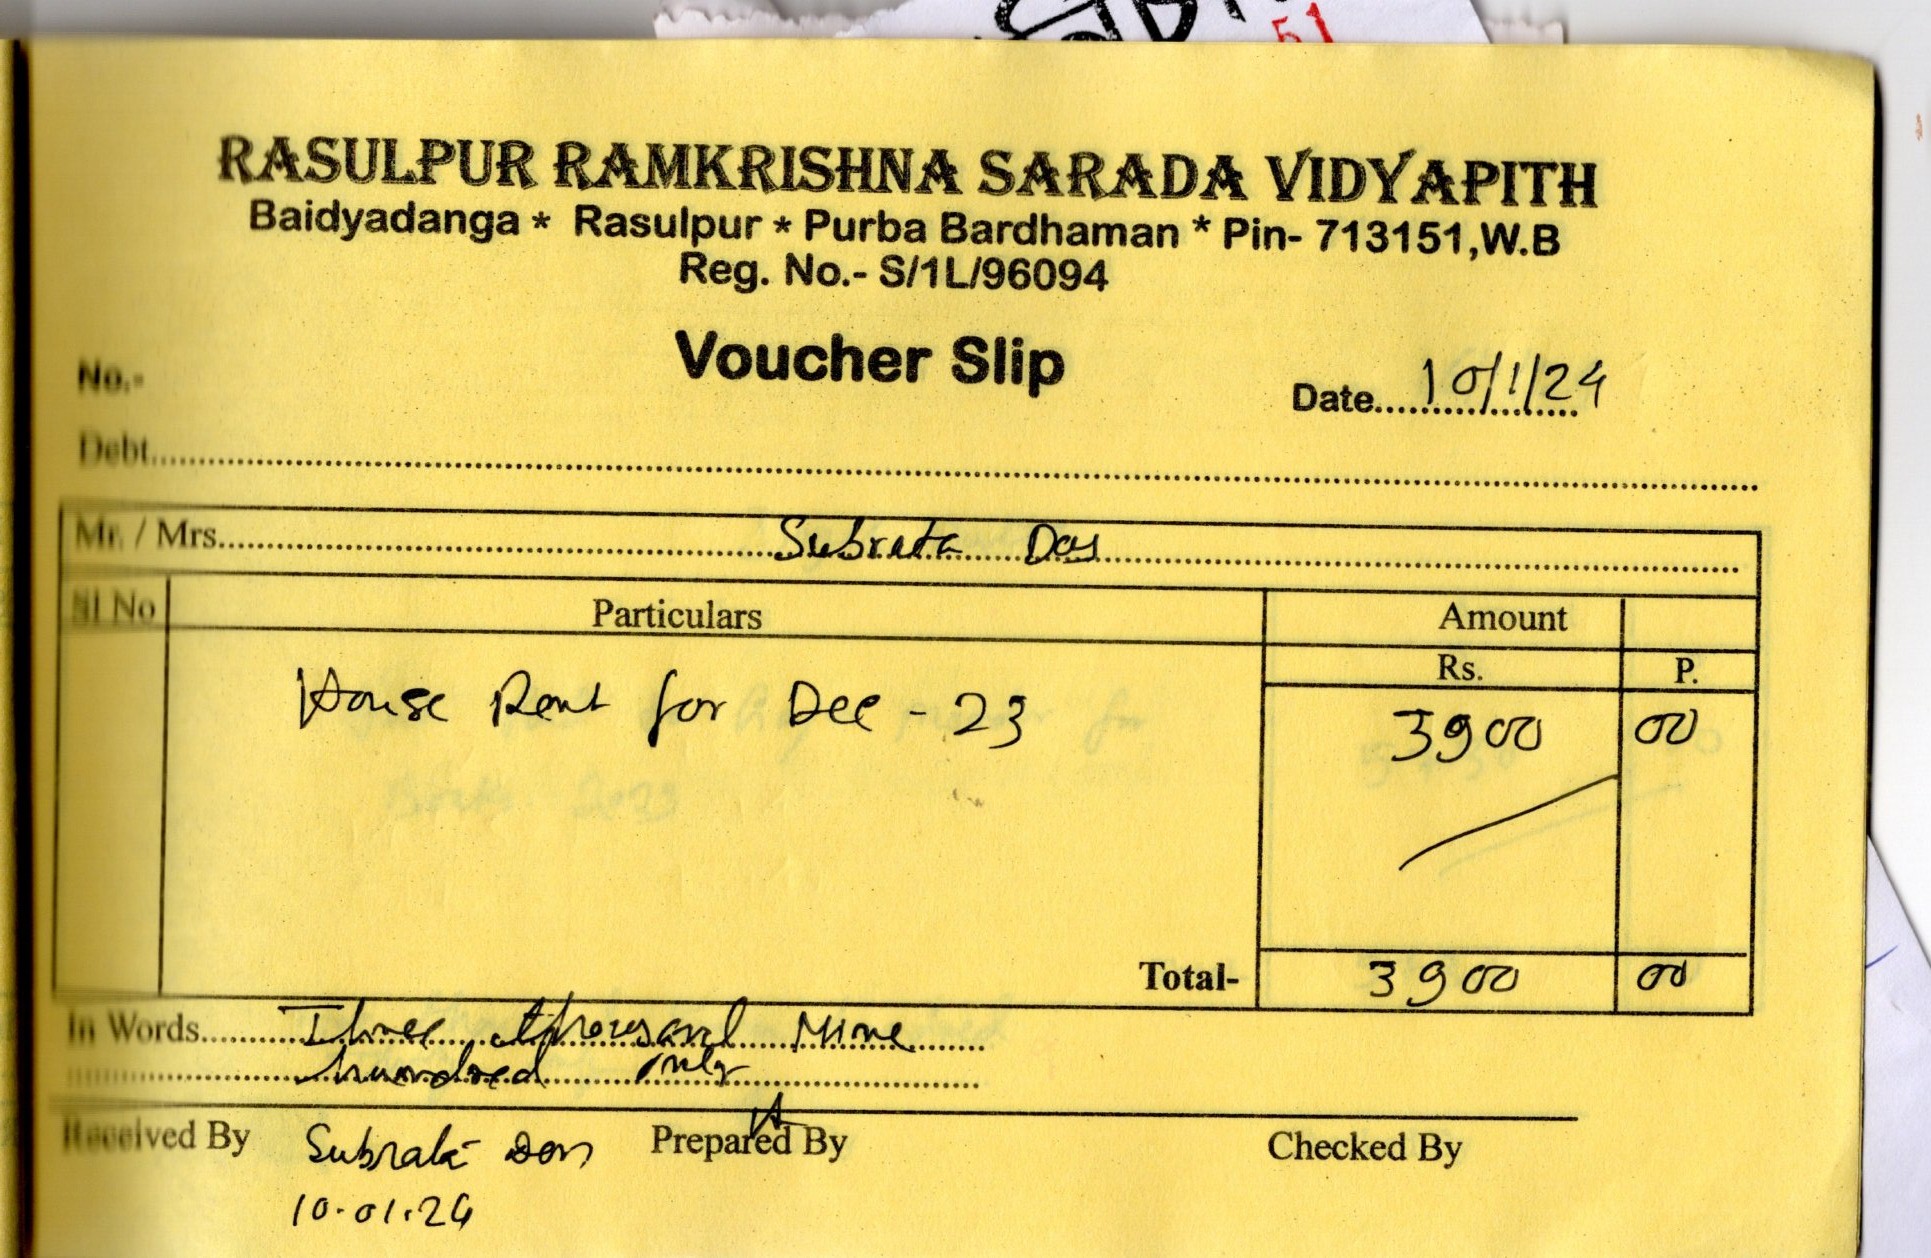 51
RASULPUR RAMKRISHNA SARADA VIDYAPITH
Baidyadanga * Rasulpur * Purba Bardhaman * Pin- 713151,W.B
Reg. No.- S/1L/96094
Voucher Slip
No.-
Date.....10/1/24
Debt.....
Mr. / Mrs.....Subrata Das
Sl No Particulars Amount
Rs. P.
House Rent for Dec - 23 3900 00
Total- 3900 00
In Words.....Three thousand Nine
hundred only
Received By Subrata Das Prepared By Checked By
10.01.24